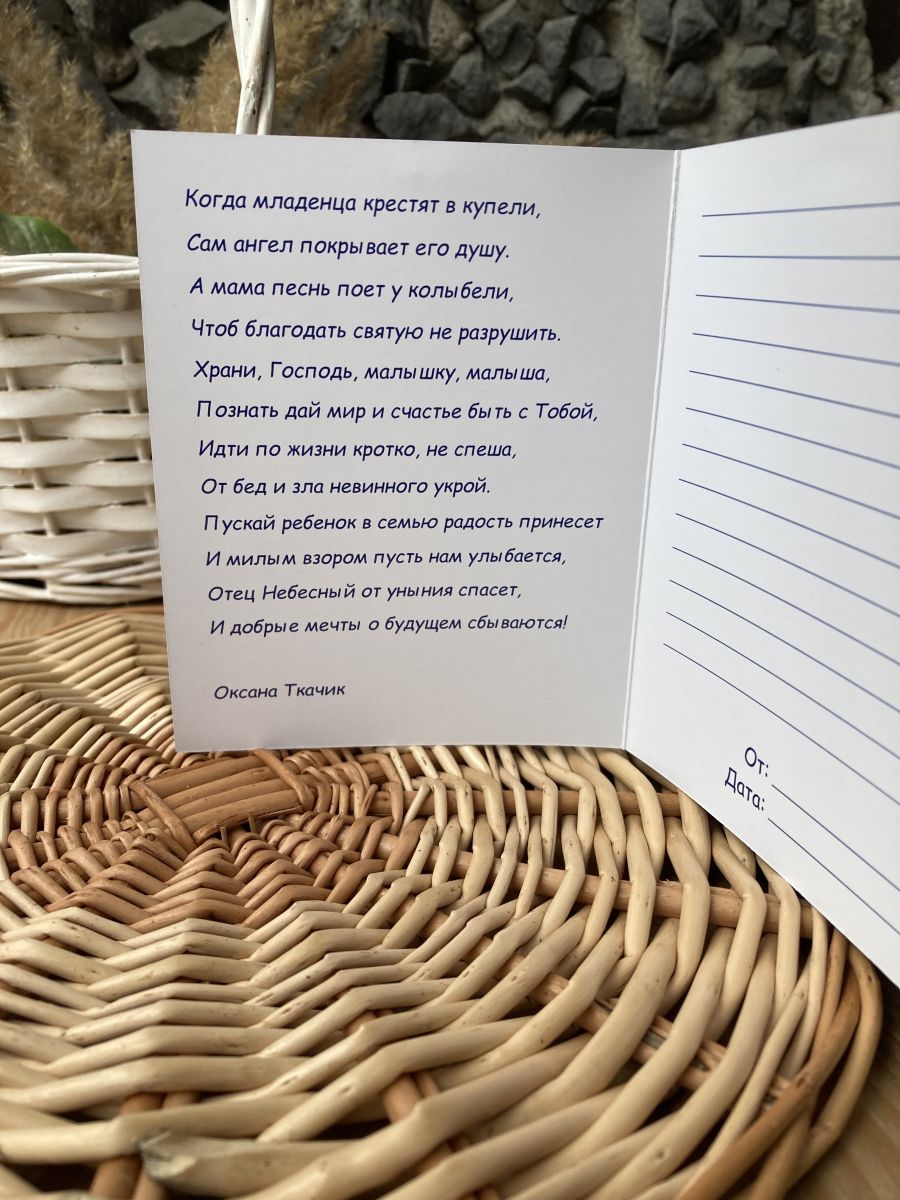 Когда младенца крестят в купели,
Сам ангел покрывает его душу.
А мама песнь поет у колыбели,
Чтоб благодать святую не разрушить.
Храни, Господь, малышку, малыша,
Познать дай мир и счастье быть с Тобой,
Идти по жизни кротко, не спеша,
От бед и зла невинного укрой.
Пускай ребенок в семью радость принесет
И милым взором пусть нам улыбается,
Отец Небесный от уныния спасет,
И добрые мечты о будущем сбываются!
Оксана Ткачик
От:
Дата: